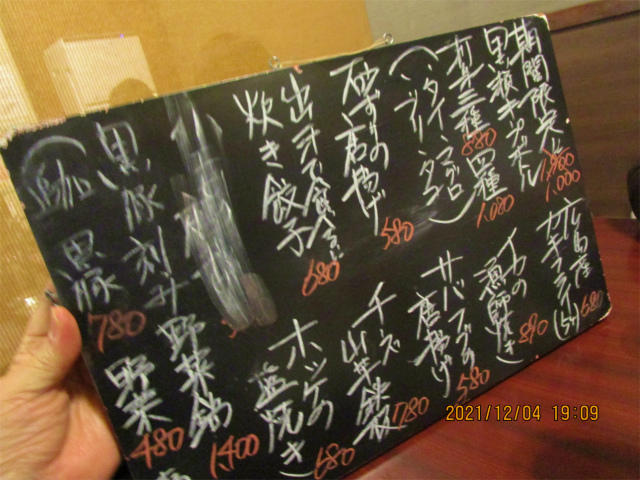 期間限定
黒瓶キープボトル
1,980
1,000
お造り三種 880 四種 1,080
(タイ、マグロ
ブリ、タコ)
砂ずりの唐揚げ
580
出汁で食べる
炊き餃子
680
黒豚刻み野菜鍋
1,400
(追加 黒豚 780 野菜 480
広島産
カキフライ(5ヶ) 680
イカの
魚醤焼き 890
サバフグの
唐揚げ 580
チーズ
山芋鉄板 780
ホッケの
塩焼き 680
2021/12/04 19:09